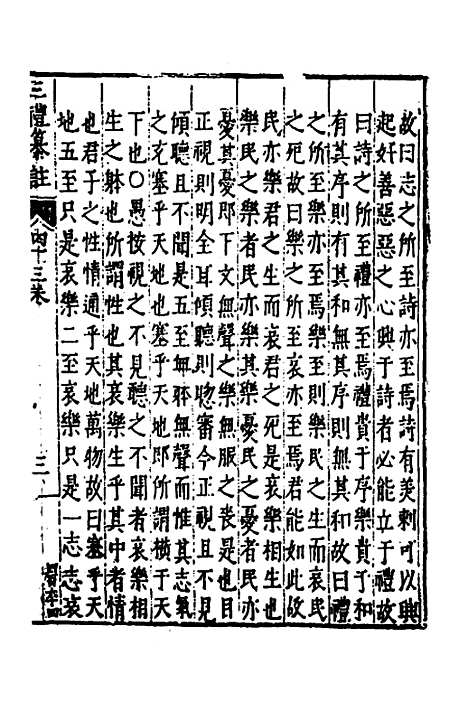 故曰志之所至詩亦至焉詩有美刺可以興
起好善惡惡之心興于詩者必能立于禮故
曰詩之所至禮亦至焉禮貴于序樂貴于和
有其序則有其和無其序則無其和故曰禮
之所至樂亦至焉樂至則樂民之生而哀民
之死故曰樂之所至哀亦至焉君能如此故
民亦樂君之生而哀君之死是哀樂相生也
樂民之樂者民亦樂其樂憂民之憂者民亦
憂其憂即下文無聲之樂無服之喪是也目
正視則明全耳傾聽則聰審今正視且不見
傾聽且不聞是五至無體無聲而惟其志氣
之充塞乎天地也塞乎天地即所謂橫于天
下也○愚按視之不見聽之不聞者哀樂相
生之體也所謂性也其哀樂生乎其中者情
也君子之性情通乎天地萬物故曰塞乎天
地五至只是哀樂二至哀樂只是一志志哀
三禮纂註 四十三卷 三